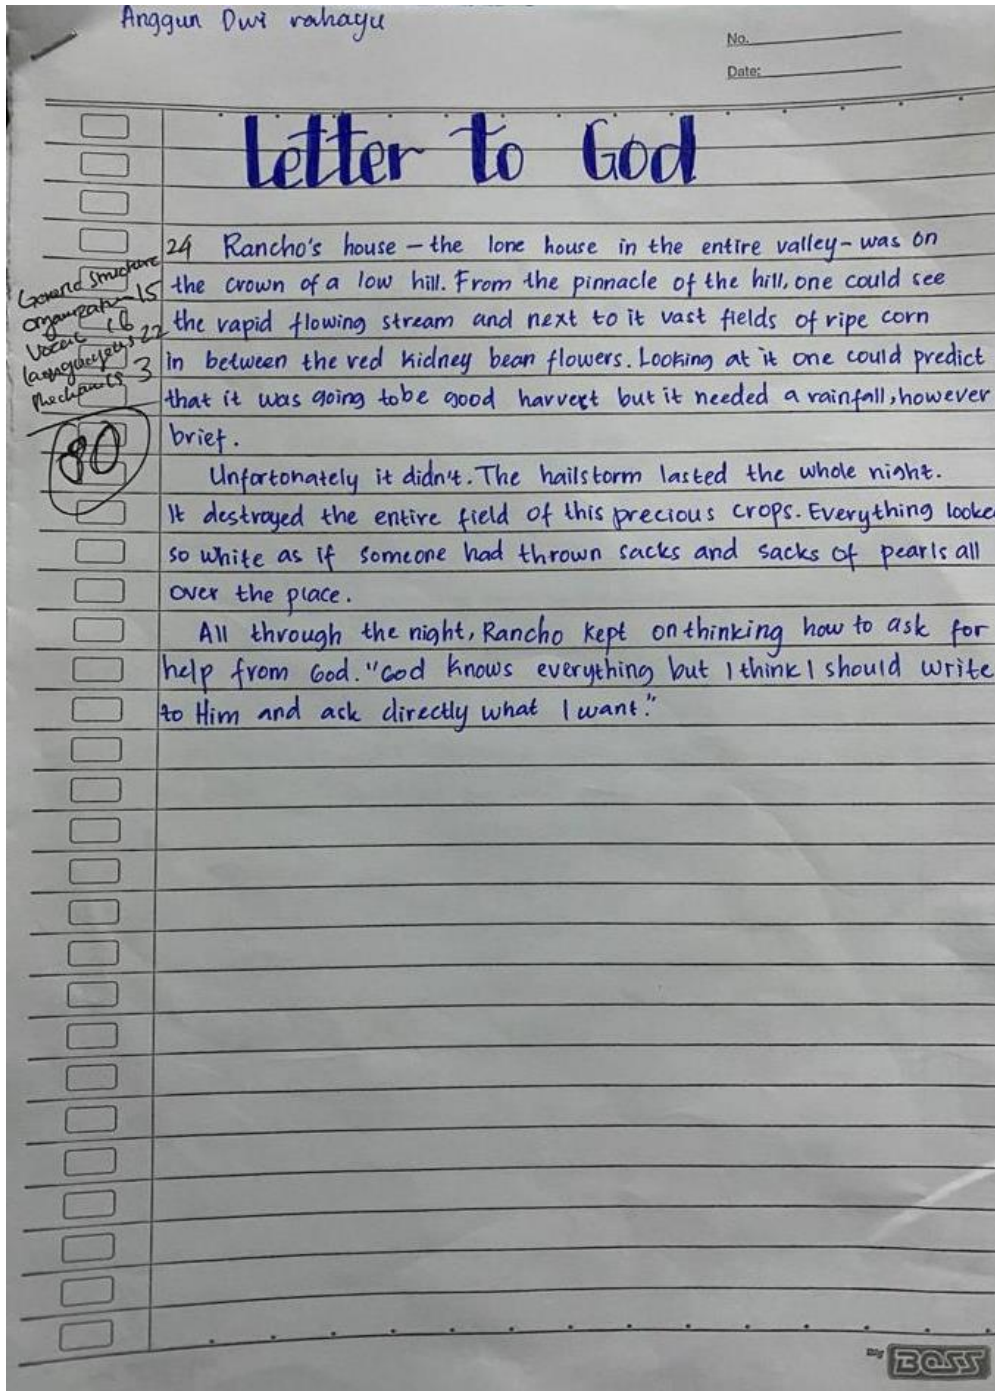 Anggun Dwi rahayu
No.
Date:
Letter to God
Generic structure 24
organization 15
Vocab 16
language use 22
Mechanics 3
80
Rancho's house – the lone house in the entire valley – was on
the crown of a low hill. From the pinnacle of the hill, one could see
the rapid flowing stream and next to it vast fields of ripe corn
in between the red kidney bean flowers. Looking at it one could predict
that it was going tobe good harvest but it needed a rainfall, however
brief.
Unfortunately it didn't. The hailstorm lasted the whole night.
It destroyed the entire field of this precious crops. Everything looke
so white as if someone had thrown sacks and sacks of pearls all
over the place.
All through the night, Rancho kept on thinking how to ask for
help from God. "God knows everything but I think I should write
to Him and ask directly what I want."
My BOSS